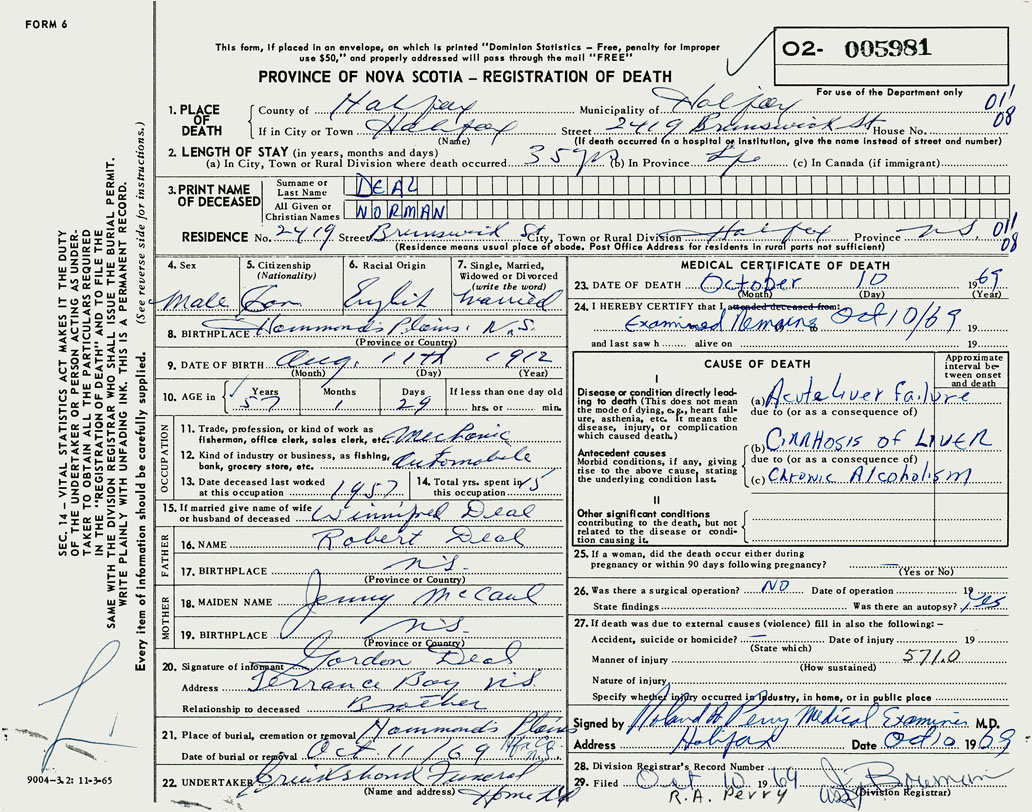 FORM 6
This form, if placed in an envelope, on which is printed "Dominion Statistics – Free, penalty for improper
use $50," and properly addressed will pass through the mail "FREE"
PROVINCE OF NOVA SCOTIA – REGISTRATION OF DEATH
02- 005981
For use of the Department only
1. PLACE OF DEATH
County of Halifax Municipality of Halifax 011
08
If in City or Town Halifax Street 2419 Brunswick St House No.
(Name) (If death occurred in a hospital or institution, give the name instead of street and number)
2. LENGTH OF STAY (in years, months and days)
(a) In City, Town or Rural Division where death occurred 35 yrs (b) In Province Life (c) In Canada (if immigrant)
3. PRINT NAME OF DECEASED
Surname or Last Name DEAL
All Given or Christian Names NORMAN
RESIDENCE No. 2419 Street Brunswick St City, Town or Rural Division Halifax Province N.S. 011
08
(Residence means usual place of abode. Post Office Address for residents in rural parts not sufficient)
4. Sex Male
5. Citizenship (Nationality) Can
6. Racial Origin English
7. Single, Married, Widowed or Divorced (write the word) Married
8. BIRTHPLACE Hammonds Plains, N.S.
(Province or Country)
9. DATE OF BIRTH Aug. 11th 1912
(Month) (Day) (Year)
10. AGE in Years 57 Months 1 Days 29 If less than one day old hrs. or min.
OCCUPATION
11. Trade, profession or kind of work as fisherman, office clerk, sales clerk, etc. Mechanic
12. Kind of industry or business, as fishing, bank, grocery store, etc. Automobile
13. Date deceased last worked at this occupation 1957
14. Total yrs. spent in 15
15. If married give name of wife or husband of deceased Winnifred Deal
FATHER
16. NAME Robert Deal
17. BIRTHPLACE N.S.
(Province or Country)
MOTHER
18. MAIDEN NAME Jenny McCaul
19. BIRTHPLACE N.S.
(Province or Country)
20. Signature of informant Gordon Deal
Address Terrance Bay N.S.
Relationship to deceased Brother
21. Place of burial, cremation or removal Hammonds Plains
Date of burial or removal Oct 11/69 Hfx Co. N.S.
22. UNDERTAKER Cruikshank Funeral
(Name and address) Home Ltd
MEDICAL CERTIFICATE OF DEATH
23. DATE OF DEATH October 10 1969
(Month) (Day) (Year)
24. I HEREBY CERTIFY that I attended deceased from
Examined Remains to Oct 10/69 19
and last saw h alive on 19
CAUSE OF DEATH
Approximate interval between onset and death
I
Disease or condition directly leading to death (This does not mean the mode of dying, e.g., heart failure, asthenia, etc. It means the disease, injury, or complication which caused death.)
(a) Acute Liver Failure
due to (or as a consequence of)
(b) CIRRHOSIS OF LIVER
Antecedent causes
Morbid conditions, if any, giving rise to the above cause, stating the underlying condition last.
due to (or as a consequence of)
(c) Chronic Alcoholism
II
Other significant conditions
contributing to the death, but not related to the disease or condition causing it.
25. If a woman, did the death occur either during
pregnancy or within 90 days following pregnancy? —
(Yes or No)
26. Was there a surgical operation? NO Date of operation 19
State findings Was there an autopsy? Yes
27. If death was due to external causes (violence) fill in also the following: –
Accident, suicide or homicide? — Date of injury 19
(State which)
Manner of injury 571.0
(How sustained)
Nature of injury
Specify whether injury occurred in Industry, in home, or in public place
Signed by Roland H Perry Medical Examiner M.D.
Address Halifax Date Oct 10 1969
28. Division Registrar's Record Number
29. Filed Oct 10 1969
(Division Registrar)
R.A. PERRY
SEC. 14 – VITAL STATISTICS ACT MAKES IT THE DUTY
OF THE UNDERTAKER OR PERSON ACTING AS UNDERTAKER
TO OBTAIN ALL THE PARTICULARS REQUIRED
IN THE "REGISTRATION OF DEATH" AND TO FILE THE
SAME WITH THE DIVISION REGISTRAR WHO SHALL ISSUE THE BURIAL PERMIT.
WRITE PLAINLY WITH UNFADING INK. THIS IS A PERMANENT RECORD.
Every item of information should be carefully supplied. (See reverse side for instructions.)
9004-3.2: 11-3-65